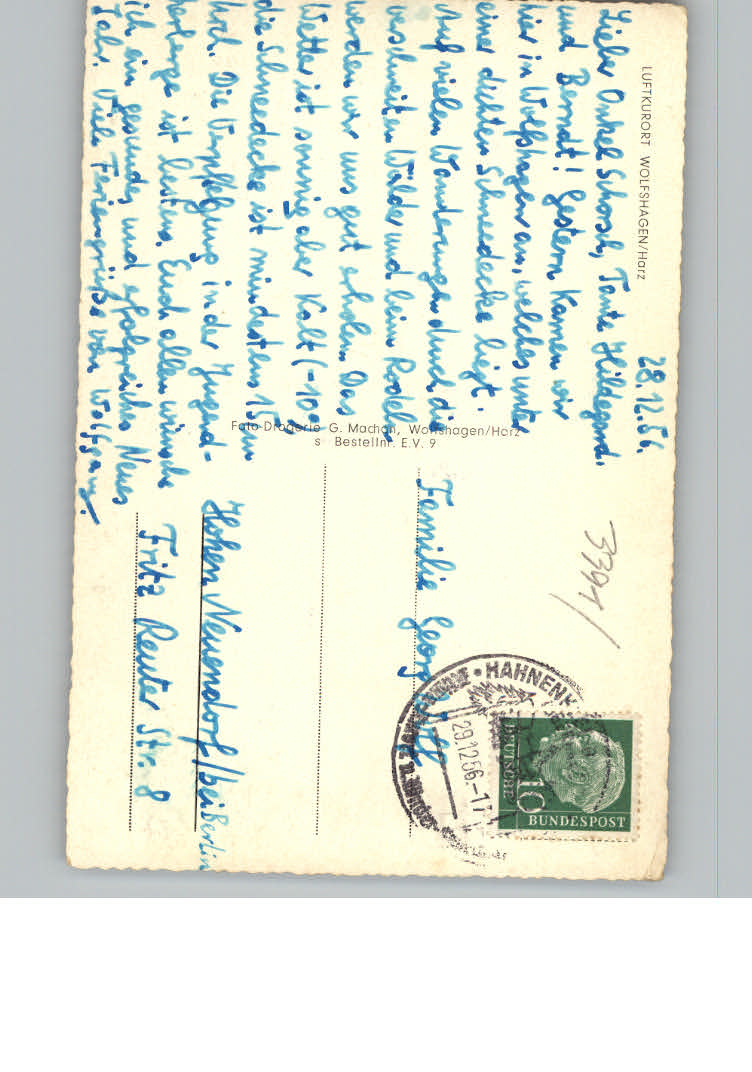 LUFTKURORT WOLFSHAGEN/Harz
28.12.56.
Lieber Onkel Schorsch, Tante Hildegard
und Berndt! Gestern kamen wir
hier in Wolfshagen an, welches unter
einer dichten Schneedecke liegt.
Auf vielen Wanderungen durch die
verschneiten Wälder und beim Rodeln
werden wir uns gut erholen. Das
Wetter ist sonnig aber kalt (-10°)
die Schneedecke ist mindestens 15 cm
hoch. Die Verpflegung in der Jugend-
herberge ist bestens. Euch allen wünsche
ich ein gesundes und erfolgreiches Neues
Jahr. Viele Feriengrüße von Wolfgang.
Foto-Drogerie G. Machon, Wolfshagen/Harz
s Bestellnr. E.V. 9
3394/
Familie Georg
Hohen Neuendorf/bei Berlin
Fritz Reuter Str. 8
HAHNENK
29.12.56.-17
DEUTSCHE
10
BUNDESPOST